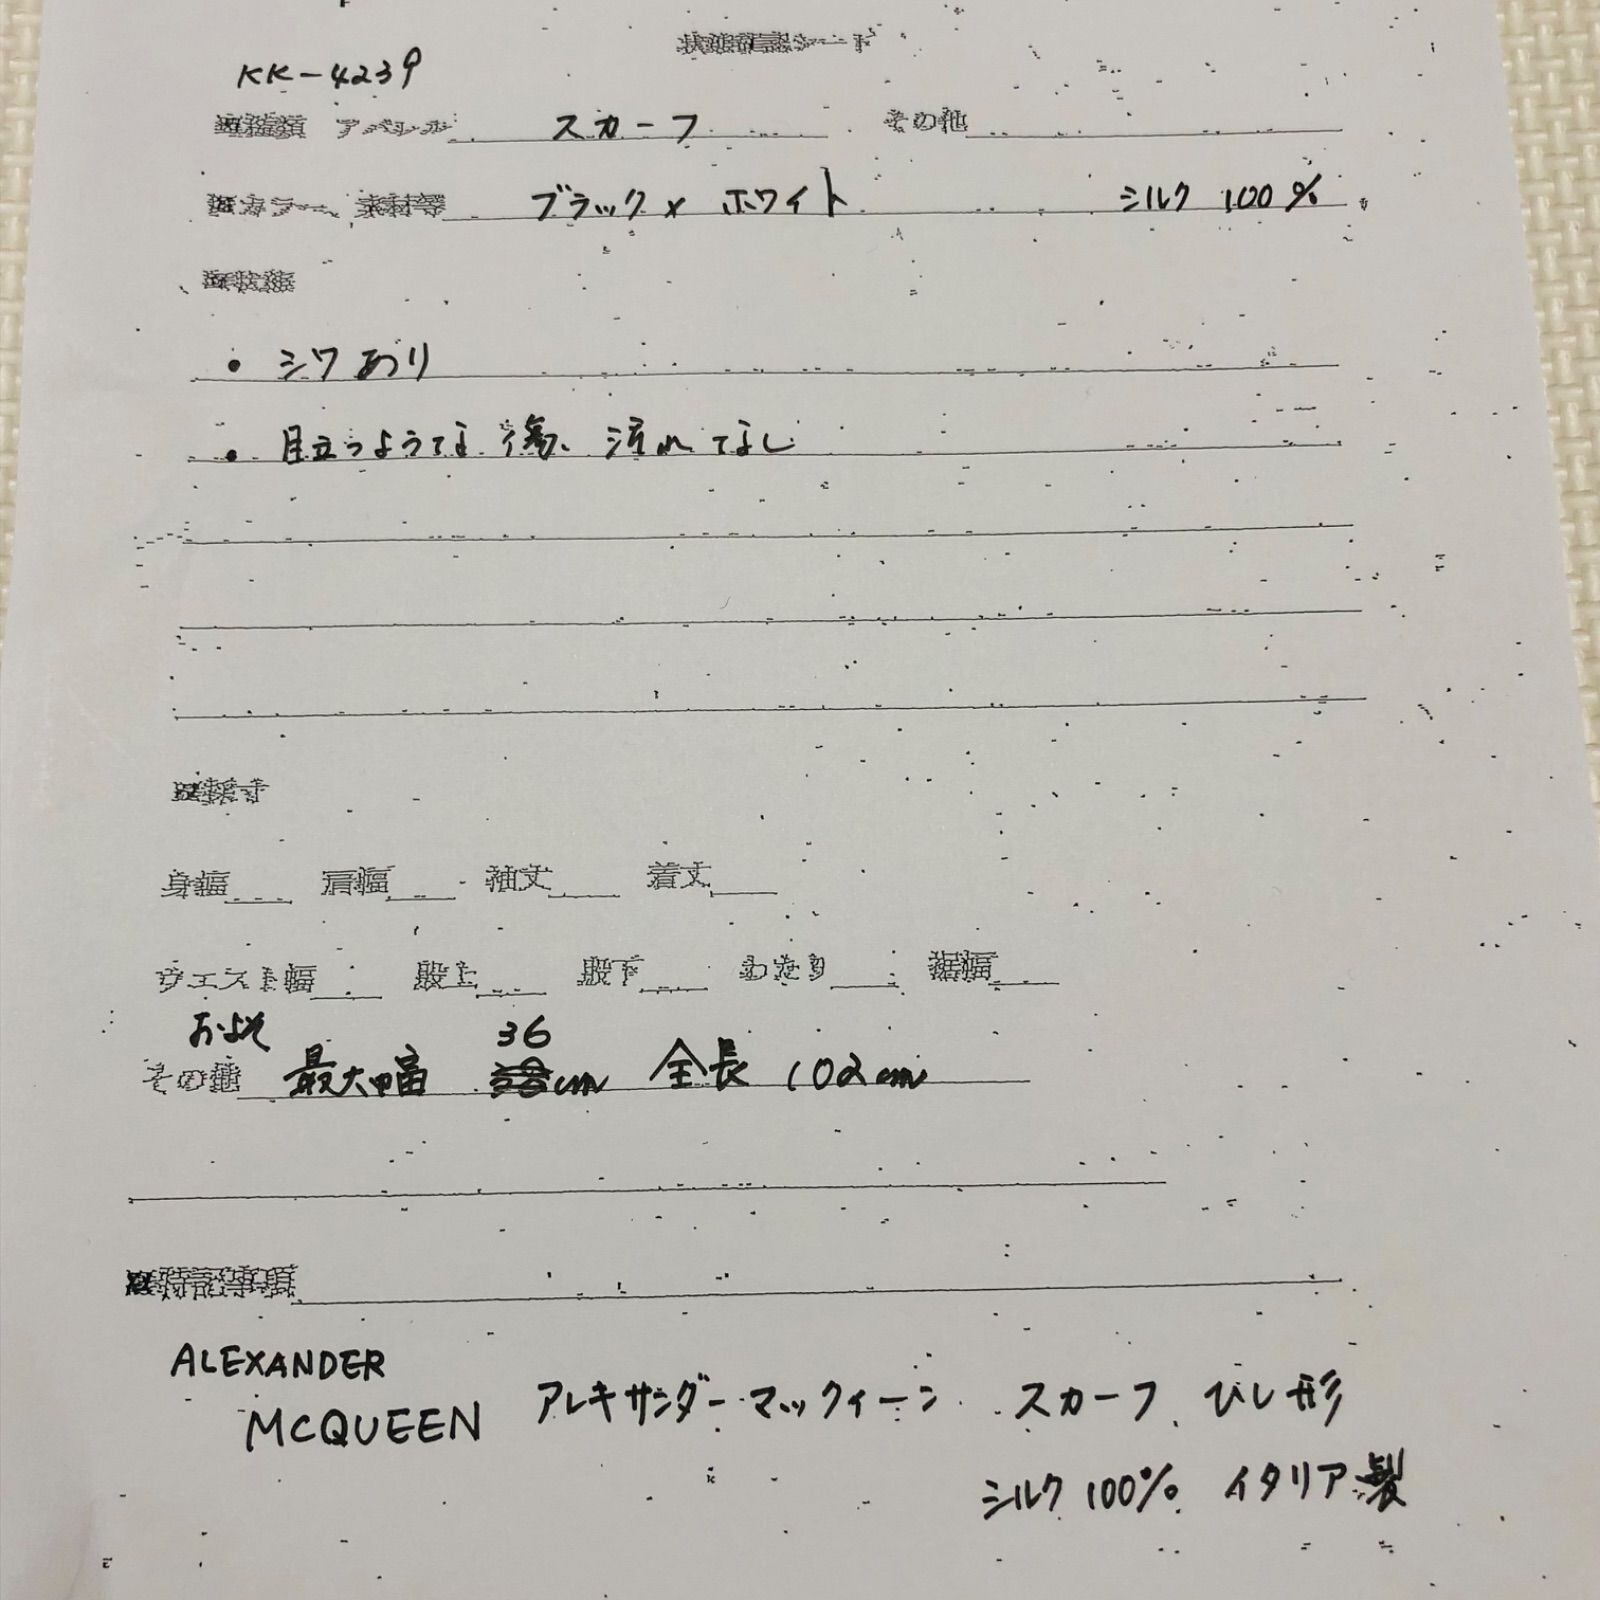 状態確認シート
KK-4239
■種類 アパレル スカーフ その他
■カラー、素材等 ブラック×ホワイト シルク 100%
■状態
• シワあり
• 目立つような傷、汚れなし
■採寸
身幅 肩幅 袖丈 着丈
ウエスト幅 股上 股下 わたり 裾幅
およそ 36
その他 最大幅 cm 全長 102cm
■特記事項
ALEXANDER
MCQUEEN アレキサンダーマックィーン スカーフ ひし形
シルク 100% イタリア製